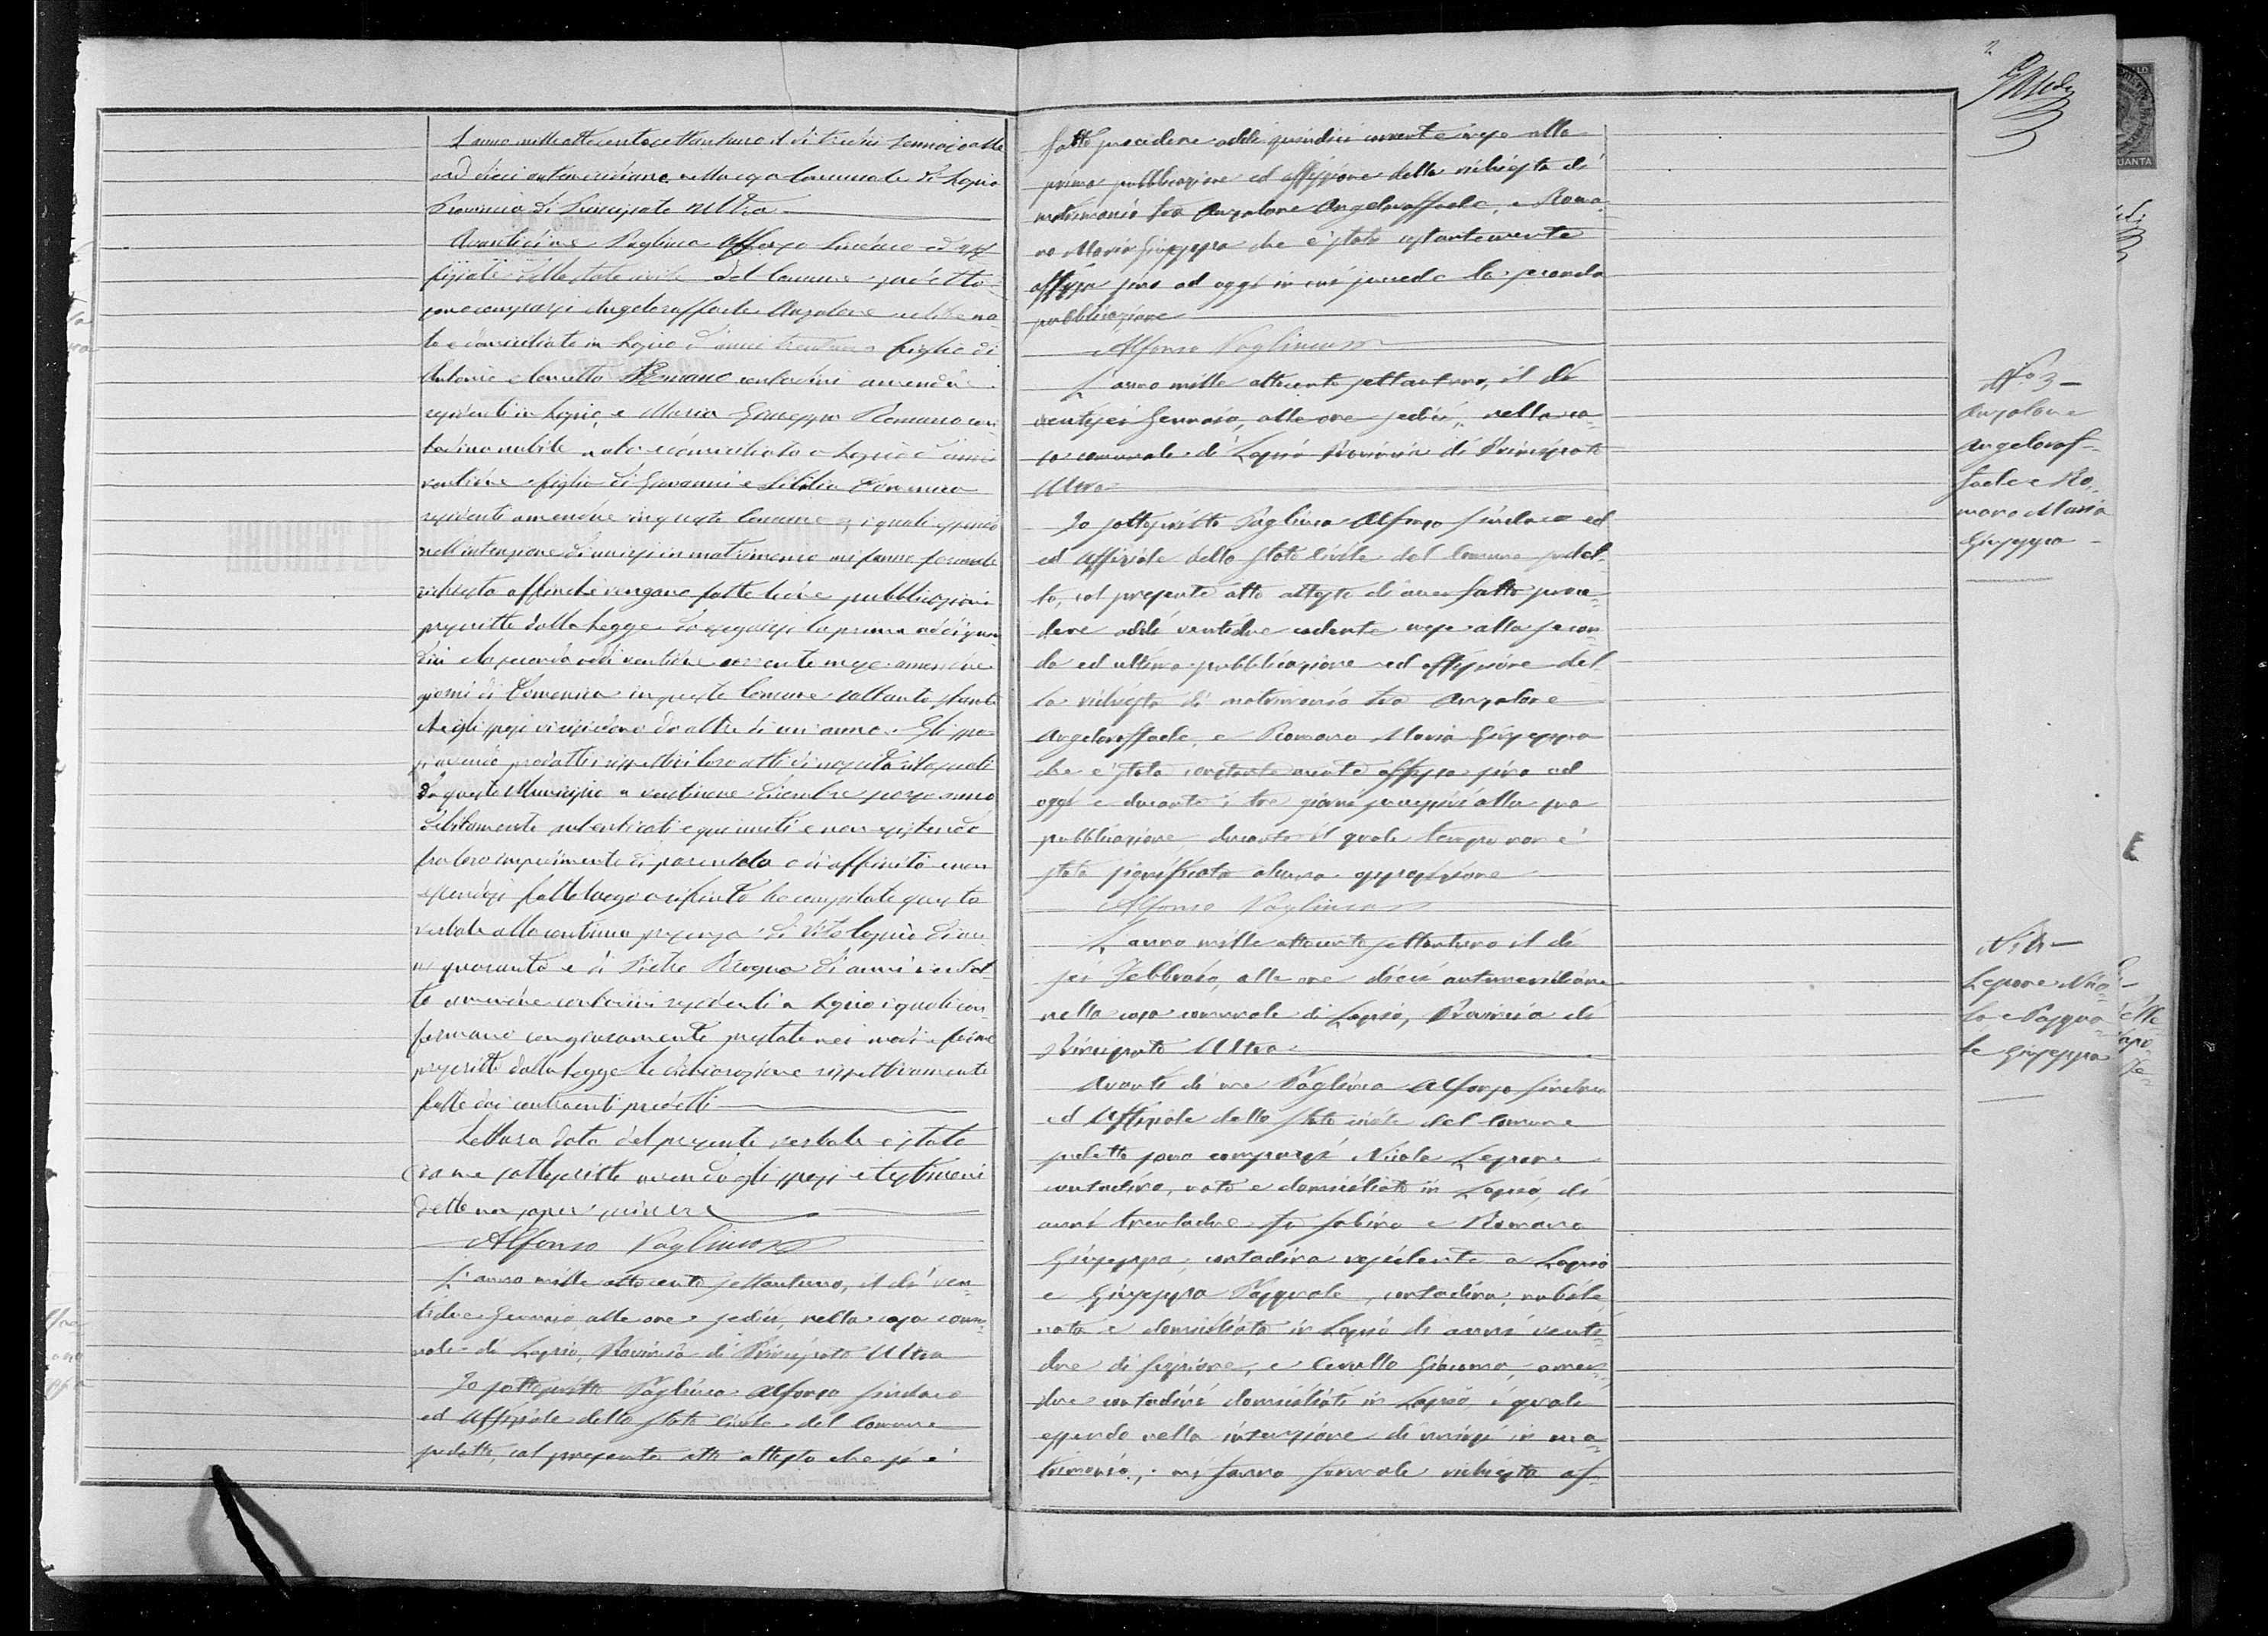 L'anno mille ottocentosettantuno il dì tredici Gennaio alle
ore dieci antimeridiane nella casa Comunale di Lapio
Provincia di Principato Ultra
Avanti di me Pagliuca Alfonso Sindaco ed Uf
fiziale dello stato civile del Comune predetto
sono comparsi Angeloraffaele Anzalone celibe na
to e domiciliato in Lapio d'anni figlio di
Antonio e Romano contadini amendue
residenti in Lapio, e Maria Giuseppa Romano con
tadina nubile nata e domiciliata a Lapio d'anni
figlia di Giovanni e
residenti amendue in questo Comune, i quali essendo
nell'intenzione di unirsi in matrimonio mi fanno formale
richiesta affinché vengano fatte le due pubblicazioni
prescritte dalla Legge da eseguirsi la prima addì quin
dici e la seconda addì ventidue corrente mese amendue
giorni di Domenica in questo Comune soltanto stante
che gli sposi vi risiedono da oltre di un anno. Gli spo
si avendo prodotti i rispettivi loro atti di nascita rilasciati
da questo Municipio a ventinove Dicembre scorso anno
debitamente autenticati e qui uniti e non esistendo
fra loro impedimento di parentela o di affinità e non
essendosi fatto luogo a rifiuto ho compilato questo
verbale alla continua presenza di Vito di an
ni quaranta e di Pietro di anni
to amendue contadini residenti a Lapio i quali con
fermano con giuramento prestato nei modi e forme
prescritti dalla Legge le dichiarazione rispettivamente
fatte dai contraenti predetti
Lettura data del presente verbale è stato
da me sottoscritto avendo gli sposi e testimoni
detto non saper scrivere
Alfonso Pagliuca
L'anno mille ottocento settantuno, il dì ven
tidue Gennaio alle ore sedici, nella casa comu
nale di Lapio, Provincia di Principato Ultra
Io sottoscritto Pagliuca Alfonso Sindaco
ed Uffiziale dello Stato Civile del Comune
predetto, col presente atto attesto che si è
fatto procedere addì quindici corrente mese alla
prima pubblicazione ed affissione della richiesta di
matrimonio tra Anzalone Angeloraffaele, e Roma
no Maria Giuseppa che è stata costantemente
affissa sino ad oggi in cui procede la seconda
pubblicazione
Alfonso Pagliuca
L'anno mille ottocento settantuno, il dì
ventisei Gennaio, alle ore sedici, nella ca
sa comunale di Lapio Provincia di Principato
Ultra
Io sottoscritto Pagliuca Alfonso Sindaco ed
ed Uffiziale dello Stato Civile del Comune predet
to, col presente atto attesto di aver fatto proce
dere addì ventidue cadente mese alla secon
da ed ultima pubblicazione ed affissione del
la richiesta di matrimonio tra Anzalone
Angeloraffaele, e Romano Maria Giuseppa
che è stata costantemente affissa sino ad
oggi e durante i tre giorni successivi alla pre
pubblicazione, durante il quale tempo non è
stata significata alcuna opposizione
Alfonso Pagliuca
L'anno mille ottocento settantuno il dì
sei Febbraio, alle ore dieci antimeridiane
nella casa comunale di Lapio, Provincia di
Principato Ultra
Avanti di me Pagliuca Alfonso Sindaco
ed Uffiziale dello Stato civile del Comune
predetto sono comparsi Nicola Lepore
contadino, nato e domiciliato in Lapio, di
anni trentadue fu Sabino e Romano
Giuseppa, contadina residente a Lapio
e Giuseppa Pasquale, contadina, nubile
nata e domiciliata in Lapio di anni venti
due di Scipione, e Carullo Giacoma, amen
due contadini domiciliati in Lapio, i quali
essendo nella intenzione di unirsi in ma
trimonio, mi fanno formale richiesta af
2
No 3 –
Anzalone
Angeloraf=
faele e Ro=
mano Maria
Giuseppa –
N. 4 –
Lepore Nico=
la e Pasqua=
le Giuseppa
UANTA